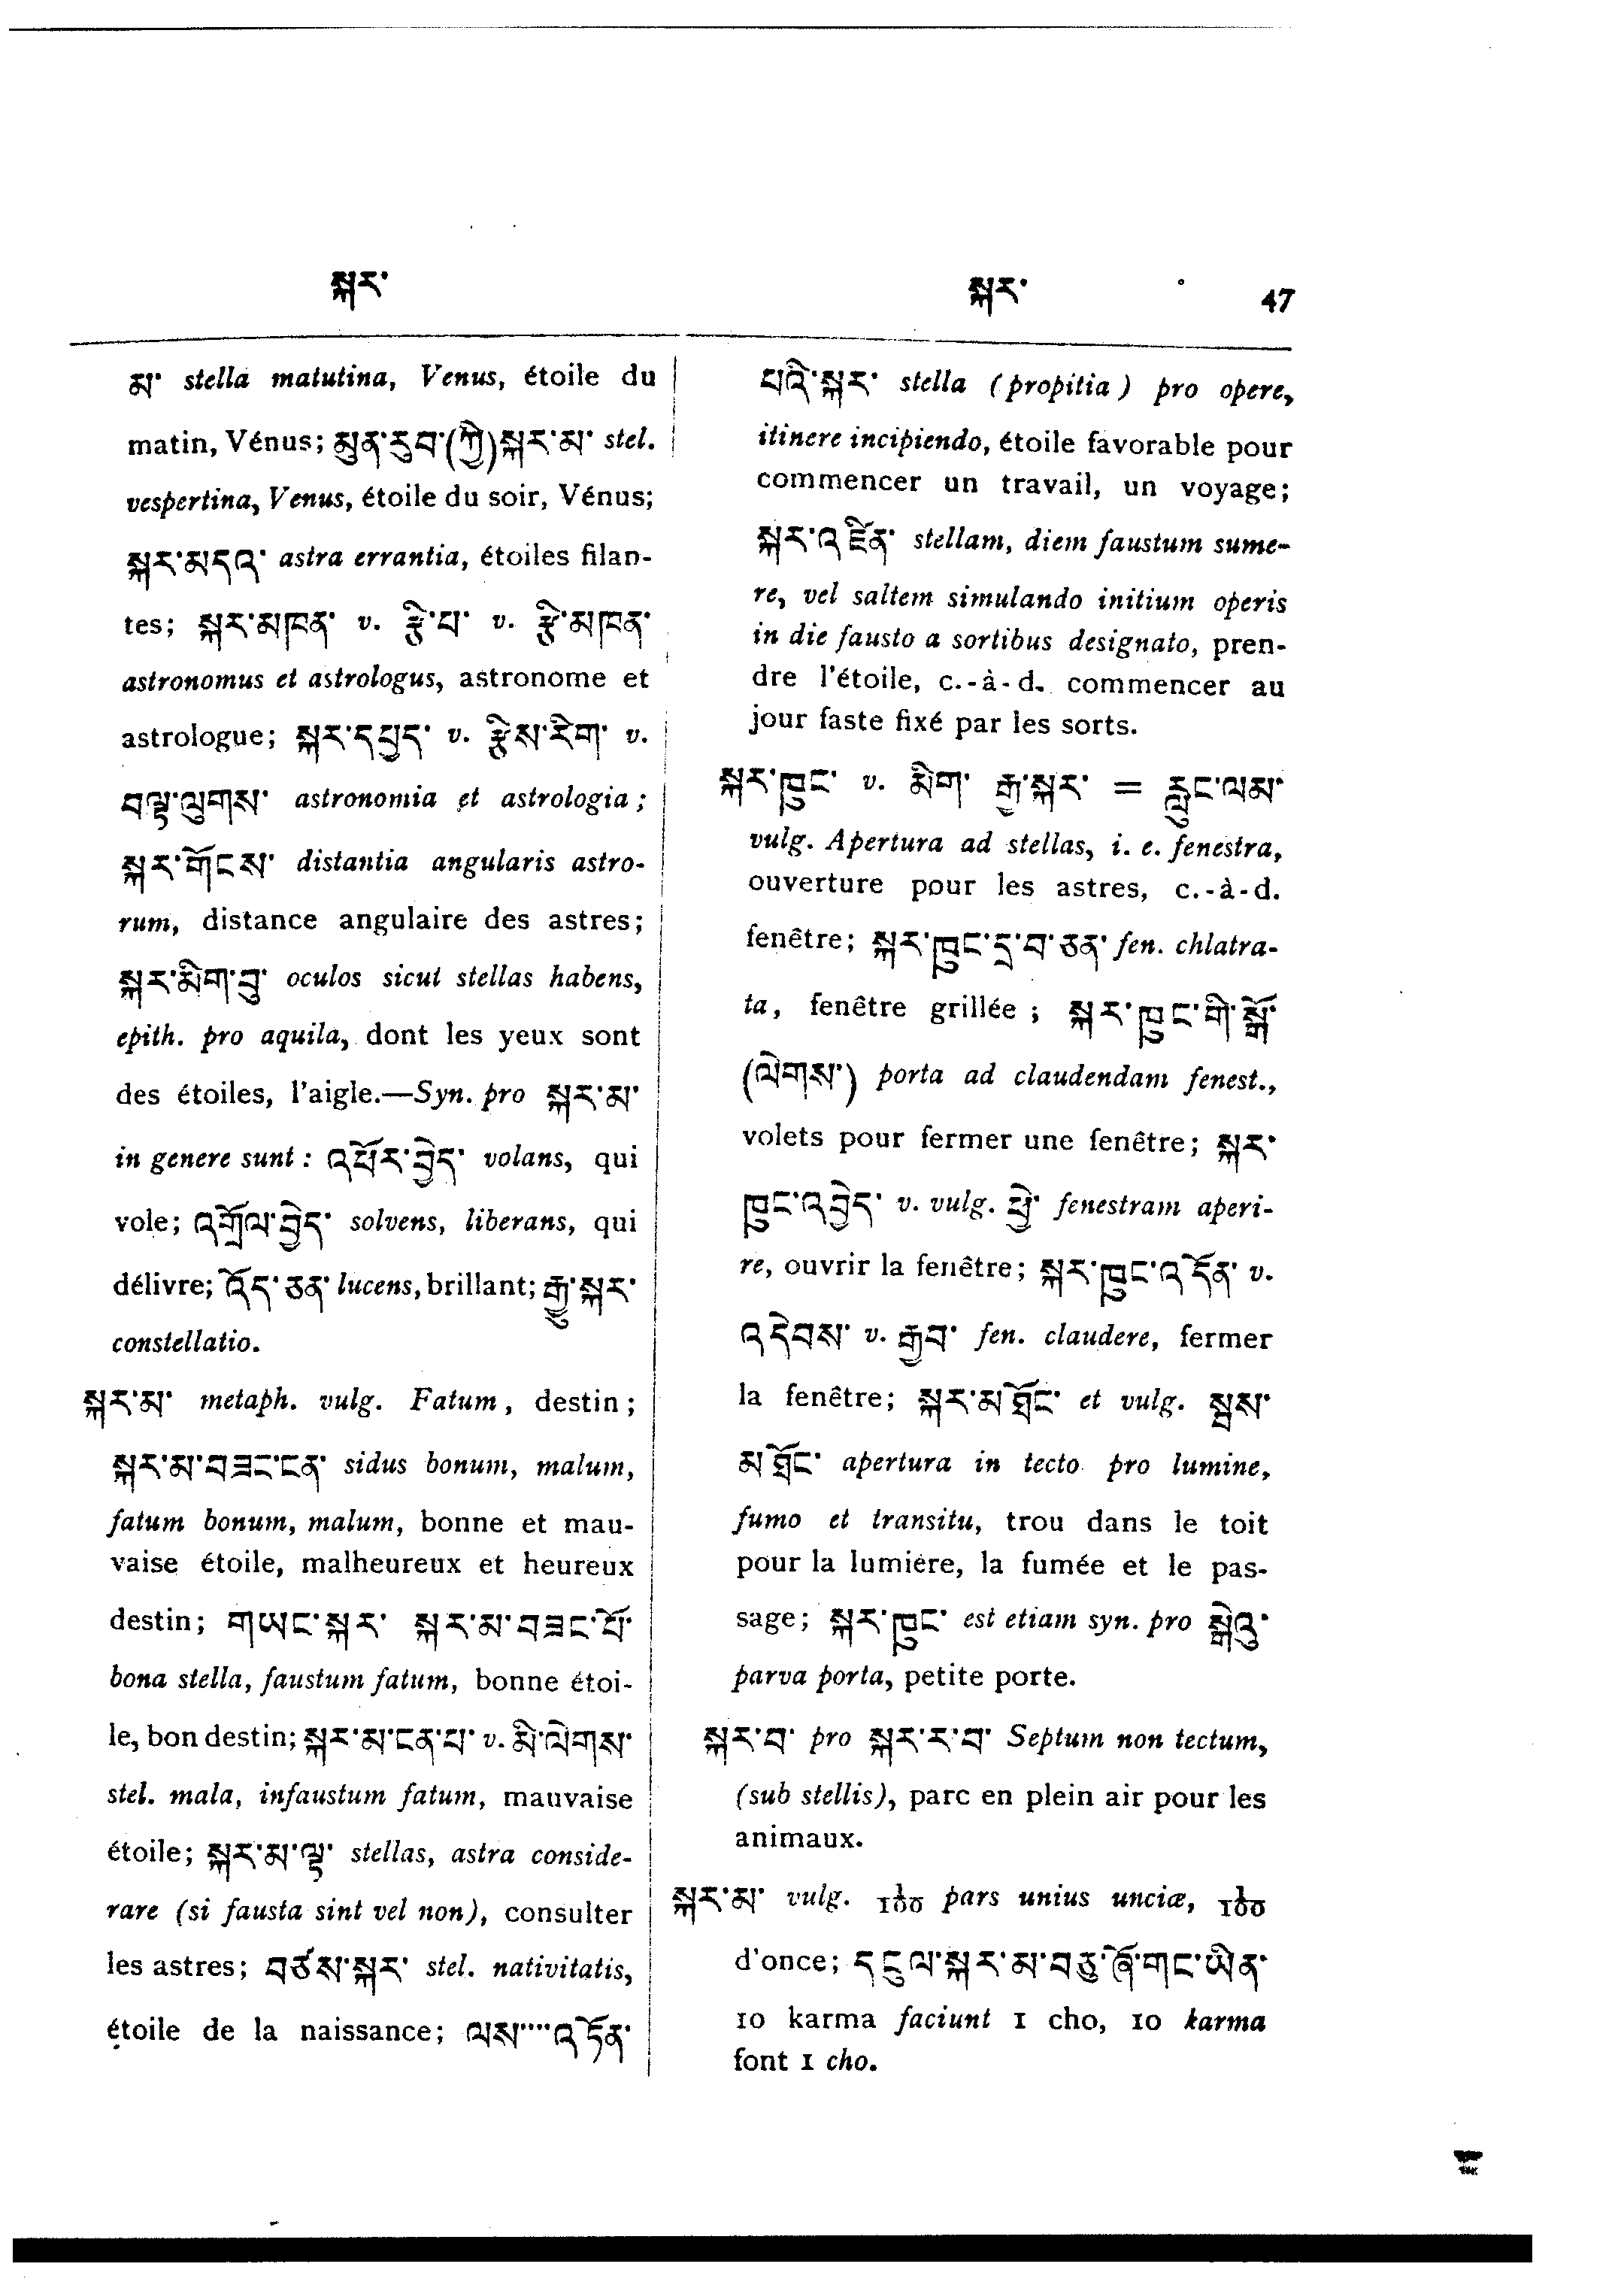 སྐར་
སྐར་ 47
མ་ stella matutina, Venus, étoile du
matin, Vénus; མུན་རུབ་(ཀྱི)སྐར་མ་ stel.
vespertina, Venus, étoile du soir, Vénus;
སྐར་མདའ་ astra errantia, étoiles filan-
tes; སྐར་མཁན་ v. རྩི་པ་ v. རྩི་མཁན་
astronomus et astrologus, astronome et
astrologue; སྐར་དཔྱད་ v. རྩིས་རིག་ v.
བལྟ་ལུགས་ astronomia et astrologia;
སྐར་གོངས་ distantia angularis astro-
rum, distance angulaire des astres;
སྐར་མིག་བུ་ oculos sicut stellas habens,
epith. pro aquila, dont les yeux sont
des étoiles, l'aigle.—Syn. pro སྐར་མ་
in genere sunt: འཕོར་བྱེད་ volans, qui
vole; འགྲོལ་བྱེད་ solvens, liberans, qui
délivre; འོད་ཅན་ lucens, brillant; རྒྱུ་སྐར་
constellatio.
སྐར་མ་ metaph. vulg. Fatum, destin;
སྐར་མ་བཟང་ངན་ sidus bonum, malum,
fatum bonum, malum, bonne et mau-
vaise étoile, malheureux et heureux
destin; གཡང་སྐར་ སྐར་མ་བཟང་པོ་
bona stella, faustum fatum, bonne étoi-
le, bon destin; སྐར་མ་ངན་པ་ v. མི་ལེགས་
stel. mala, infaustum fatum, mauvaise
étoile; སྐར་མ་ལྟ་ stellas, astra conside-
rare (si fausta sint vel non), consulter
les astres; བཙས་སྐར་ stel. nativitatis,
étoile de la naissance; ལས་་་་འདོན་
པའི་སྐར་ stella (propitia) pro opere,
itinere incipiendo, étoile favorable pour
commencer un travail, un voyage;
སྐར་འཛིན་ stellam, diem faustum sume-
re, vel saltem simulando initium operis
in die fausto a sortibus designato, pren-
dre l'étoile, c.-à-d. commencer au
jour faste fixé par les sorts.
སྐར་ཁུང་ v. མིག་ རྒྱ་སྐར་ = རླུང་ལམ་
vulg. Apertura ad stellas, i. e. fenestra,
ouverture pour les astres, c.-à-d.
fenêtre; སྐར་ཁུང་དྲ་བ་ཅན་ fen. chlatra-
ta, fenêtre grillée; སྐར་ཁུང་གི་སྒོ་
(ལེགས་) porta ad claudendam fenest.,
volets pour fermer une fenêtre; སྐར་
ཁུང་འབྱེད་ v. vulg. ཕྱེ་ fenestram aperi-
re, ouvrir la fenêtre; སྐར་ཁུང་འདོན་ v.
འདེབས་ v. རྒྱབ་ fen. claudere, fermer
la fenêtre; སྐར་མཐོང་ et vulg. སྦས་
མཐོང་ apertura in tecto pro lumine,
fumo et transitu, trou dans le toit
pour la lumière, la fumée et le pas-
sage; སྐར་ཁུང་ est etiam syn. pro སྒེའུ་
parva porta, petite porte.
སྐར་བ་ pro སྐར་ར་བ་ Septum non tectum,
(sub stellis), parc en plein air pour les
animaux.
སྐར་མ་ vulg. 1/100 pars unius unciæ, 1/100
d'once; དངུལ་སྐར་མ་བཅུ་ཞོ་གང་ཡིན་
10 karma faciunt 1 cho, 10 karma
font 1 cho.